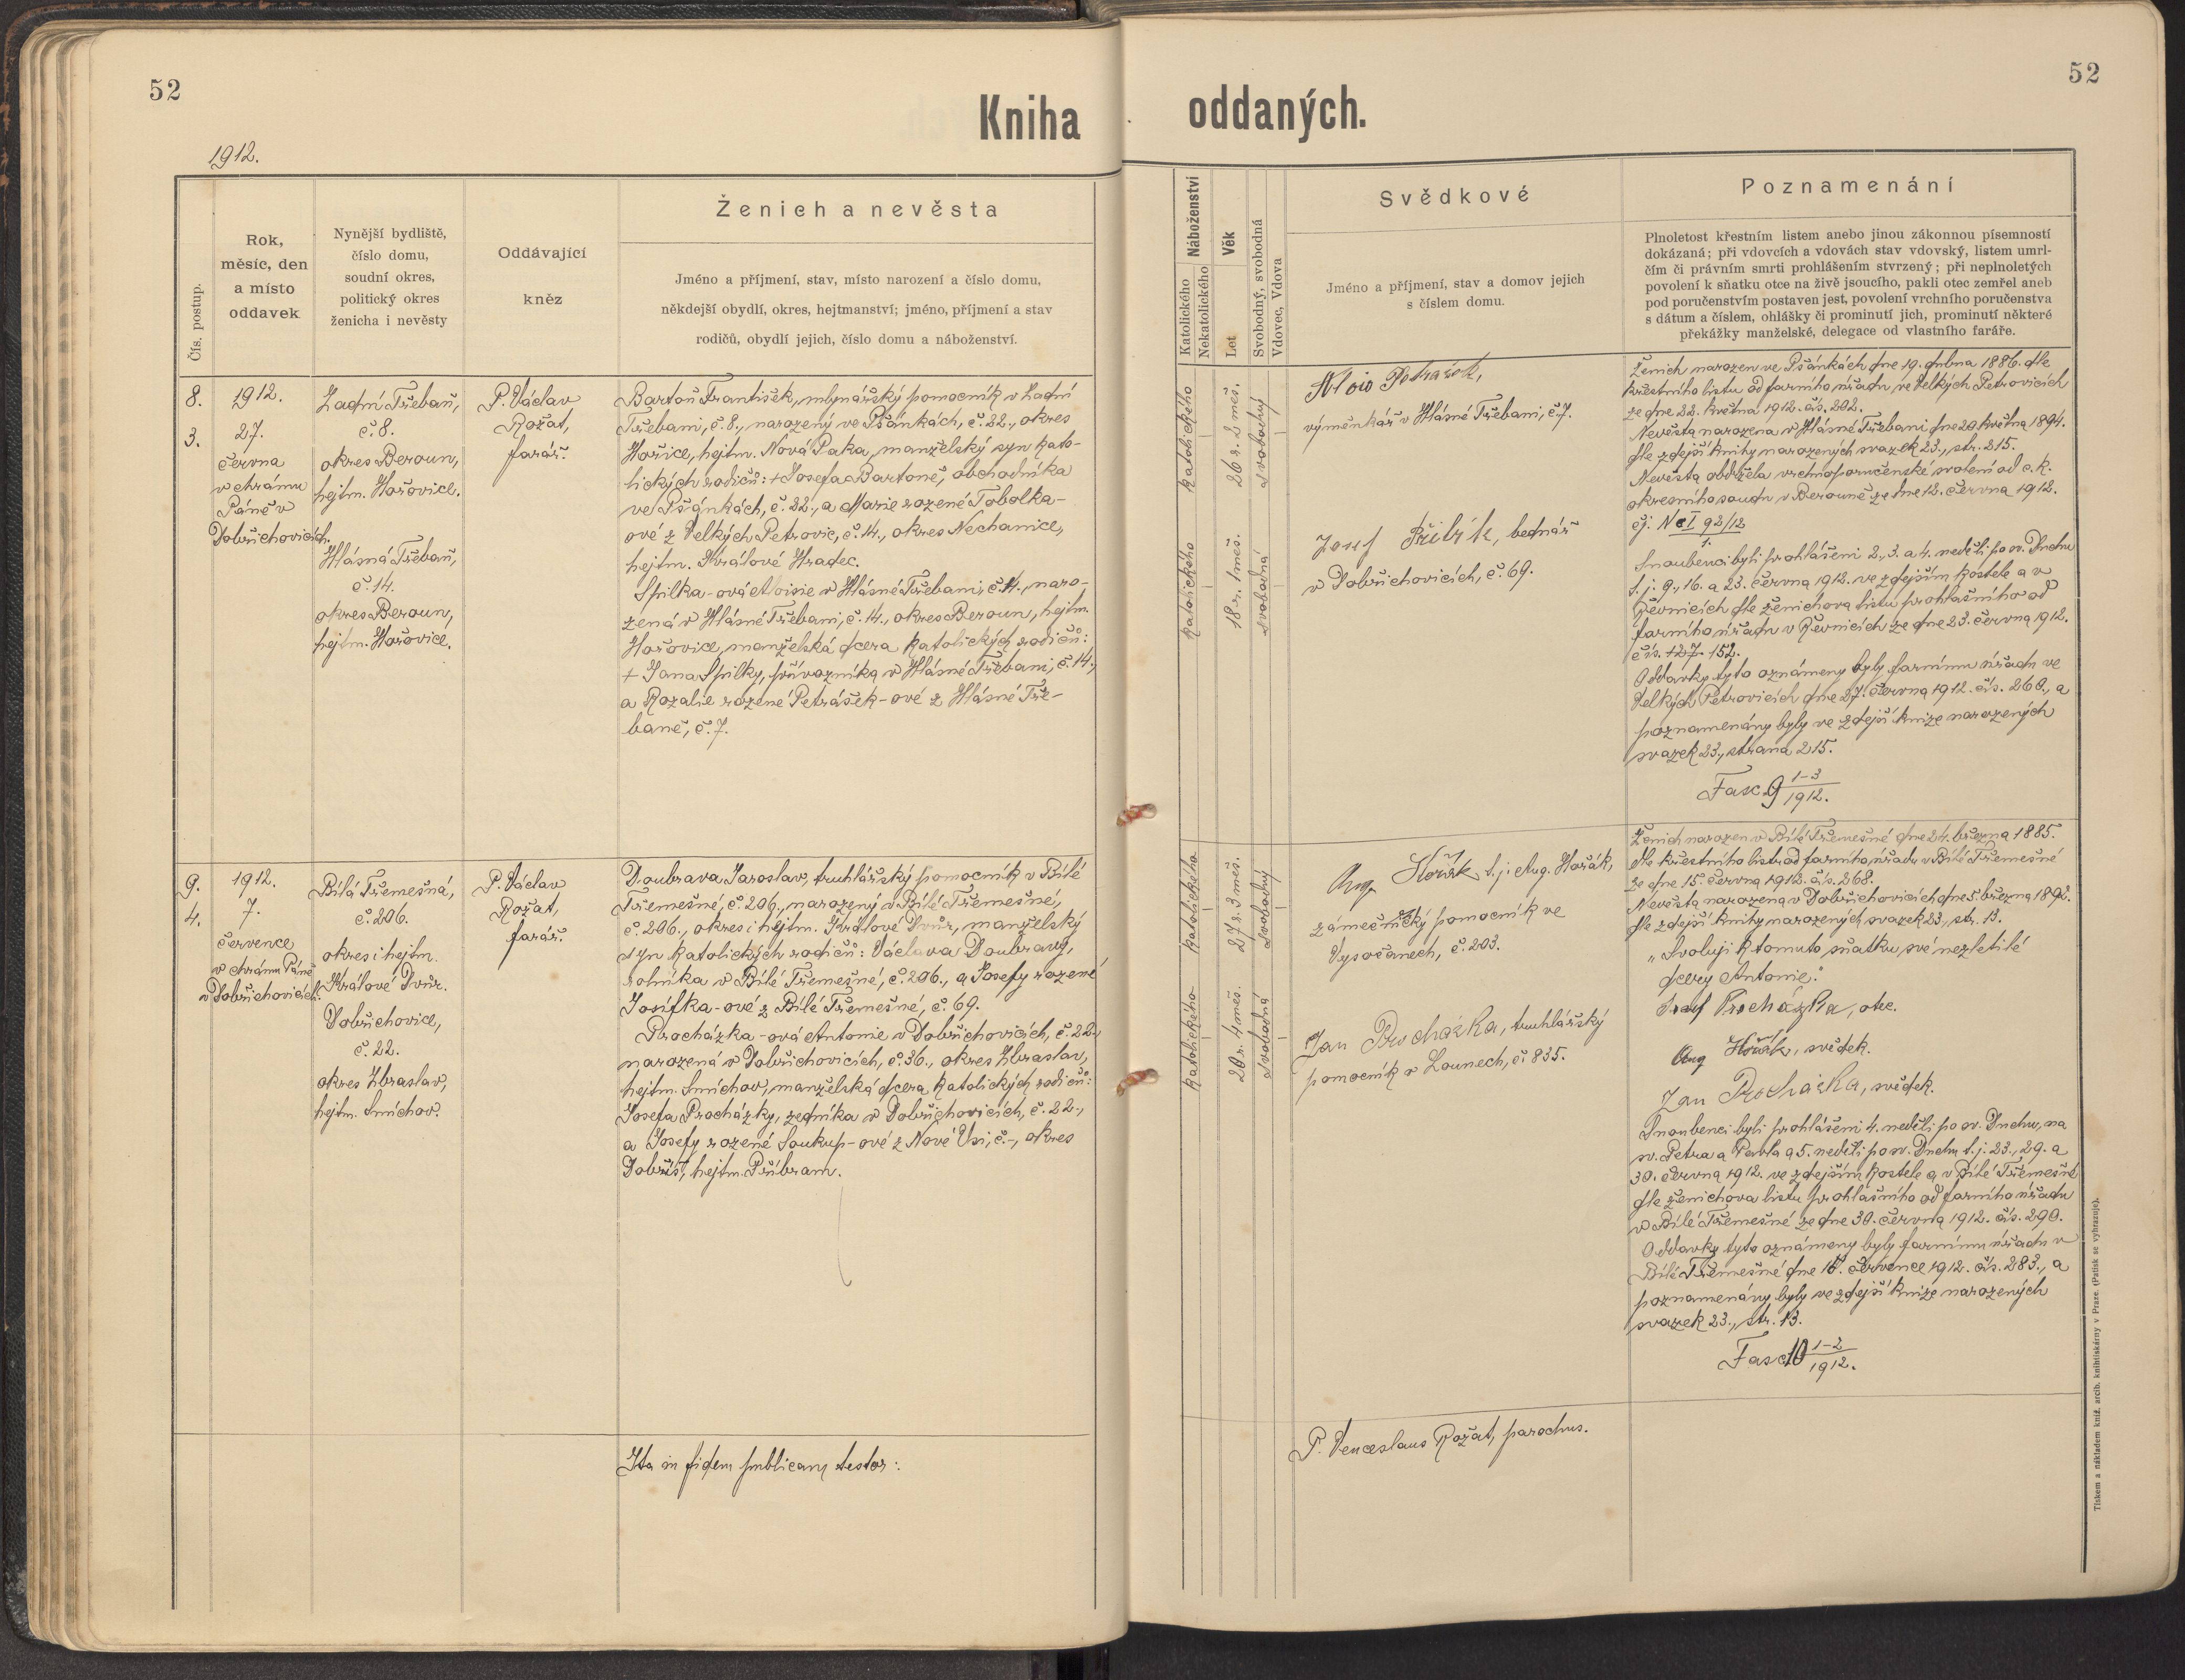 52
52
Kniha oddaných.
1912.
Čís. postup.
Rok,
měsíc, den
a místo
oddavek
Nynější bydliště,
číslo domu,
soudní okres,
politický okres
ženicha i nevěsty
Oddávající
kněz
Ženich a nevěsta
Jméno a příjmení, stav, místo narození a číslo domu,
někdejší obydlí, okres, hejtmanství; jméno, příjmení a stav
rodičů, obydlí jejich, číslo domu a náboženství.
Náboženství
Katolického
Nekatolického
Věk
Let
Svobodný, svobodná
Vdovec, Vdova
Svědkové
Jméno a příjmení, stav a domov jejich
s číslem domu.
Poznamenání
Plnoletost křestním listem anebo jinou zákonnou písemností
dokázaná; při vdovcích a vdovách stav vdovský, listem umrl-
čím či právním smrti prohlášením stvrzený; při neplnoletých
povolení k sňatku otce na živě jsoucího, pakli otec zemřel aneb
pod poručenstvím postaven jest, povolení vrchního poručenstva
s dátum a číslem, ohlášky či prominutí jich, prominutí některé
překážky manželské, delegace od vlastního faráře.
8.
3.
1912.
27.
června
v chrámu
Páně v
Dobřichovicích.
Zadní Třebaň,
č. 8.
okres Beroun,
hejtm. Hořovice.
Hlásná Třebaň,
č. 14.
okres Beroun,
hejtm. Hořovice.
P. Václav
Rožat,
farář.
Bartoň František, mlynářský pomocník v Zadní
Třebani, č. 8., narozený ve Pšánkách, č. 22., okres
Hořice, hejtm. Nová Paka, manželský syn kato-
lických rodičů: + Josefa Bartoně, obchodníka
ve Pšánkách, č. 22., a Marie rozené Tobolka-
ové z Velkých Petrovic, č. 14., okres Nechanice,
hejtm. Králové Hradec.
Spilka-ová Aloisie v Hlásné Třebani, č. 14., naro-
zená v Hlásné Třebani, č. 14., okres Beroun, hejtm.
Hořovice, manželská dcera katolických rodičů:
+ Jana Spilky, průvozníka v Hlásné Třebani, č. 14.,
a Rozalie rozené Petrášek-ové z Hlásné Tře-
baně, č. 7.
katolického
26 r. 2 měs.
svobodný
katolického
18 r. 1 měs.
svobodná
Alois Petrašek,
výměnkář v Hlásné Třebani, č. 7.
Josef Přibík, bednář
v Dobřichovicích, č. 69.
Ženich narozen ve Pšánkách dne 19. dubna 1886. dle
křestního listu od farního úřadu ve Velkých Petrovicích
ze dne 22. května 1912. čís. 202.
Nevěsta narozena v Hlásné Třebani dne 20. května 1894.
dle zdejší knihy narozených svazek 23., str. 215.
Nevěsta obdržela vrchnoporučenské svolení od c. k.
okresního soudu v Berouně ze dne 12. června 1912.
čj. Nc I 92/12
1.
Snoubenci byli prohlášeni 2., 3. a 4. neděli po sv. Duchu
t. j. 9., 16. a 23. června 1912. ve zdejším kostele a v
Řevnicích dle ženichova listu prohlašního od
farního úřadu v Řevnicích ze dne 23. června 1912.
čís. 127. 152.
Oddavky tyto oznámeny byly farnímu úřadu ve
Velkých Petrovicích dne 27. června 1912. čís. 260., a
poznamenány byly ve zdejší knize narozených
svazek 23., strana 215.
Fasc. 9 1-3/1912.
9.
4.
1912.
7.
července
v chrámu Páně
v Dobřichovicích.
Bílá Třemešná,
č. 206.
okres i hejtm.
Králové Dvůr.
Dobřichovice,
č. 22.
okres Zbraslav,
hejtm. Smíchov.
P. Václav
Rožat,
farář.
Doubrava Jaroslav, truhlářský pomocník v Bílé
Třemešné, č. 206., narozený v Bílé Třemešné,
č. 206., okres i hejtm. Králové Dvůr, manželský
syn katolických rodičů: Václava Doubravy,
rolníka v Bílé Třemešné, č. 206., a Josefy rozené
Josífka-ové z Bílé Třemešné, č. 69.
Procházka-ová Antonie v Dobřichovicích, č. 22.,
narozená v Dobřichovicích, č. 36., okres Zbraslav,
hejtm. Smíchov, manželská dcera katolických rodičů:
Josefa Procházky, zedníka v Dobřichovicích, č. 22.,
a Josefy rozené Soukup-ové z Nové Vsi, č. -, okres
Dobříš, hejtm. Příbram.
katolického
27 r. 3 měs.
svobodný
katolického
20 r. 4 měs.
svobodná
Aug Hořák t. j. Aug. Hořák,
zámečnický pomocník ve
Vysočanech, č. 203.
Jan Procházka, truhlářský
pomocník v Lounech, č. 835.
Ženich narozen v Bílé Třemešné dne 24. března 1885.
dle křestního listu od farního úřadu v Bílé Třemešné
ze dne 15. června 1912. čís. 268.
Nevěsta narozena v Dobřichovicích dne 5. března 1892.
dle zdejší knihy narozených svazek 23., str. 13.
„Svoluji k tomuto sňatku své nezletilé
dcery Antonie."
Josef Procházka, otec.
Aug Hořák, svědek.
Jan Procházka, svědek.
Snoubenci byli prohlášeni 4. neděli po sv. Duchu, na
sv. Petra a Pavla a 5. neděli po sv. Duchu t. j. 23., 29. a
30. června 1912. ve zdejším kostele a v Bílé Třemešné
dle ženichova listu prohlašního od farního úřadu
v Bílé Třemešné ze dne 30. června 1912. čís. 290.
Oddavky tyto oznámeny byly farnímu úřadu v
Bílé Třemešné dne července 1912. čís. 283., a
poznamenány byly ve zdejší knize narozených
svazek 23., str. 13.
Fasc. 10 1-2/1912.
Ita in fidem publicam testor:
P. Venceslaus Rožat, parochus.
Tiskem a nákladem kníž. arcib. knihtiskárny v Praze. (Patisk se vyhrazuje).